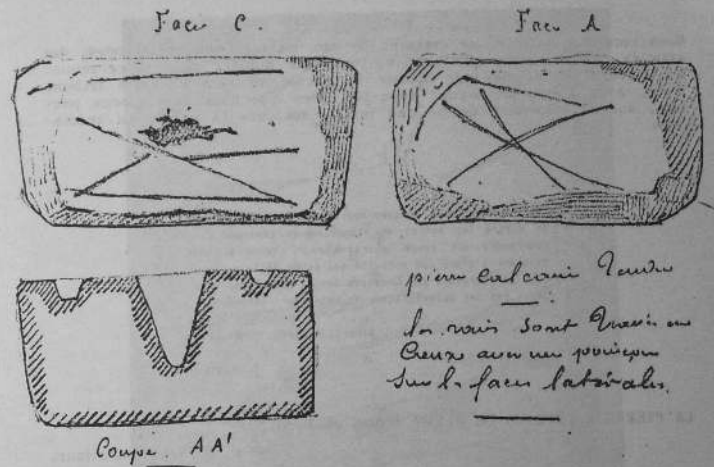 Face C.
Face A
pierre calcaire tendre
les raies sont tracées en
creux avec un poinçon
sur les faces latérales.
Coupe. AA'